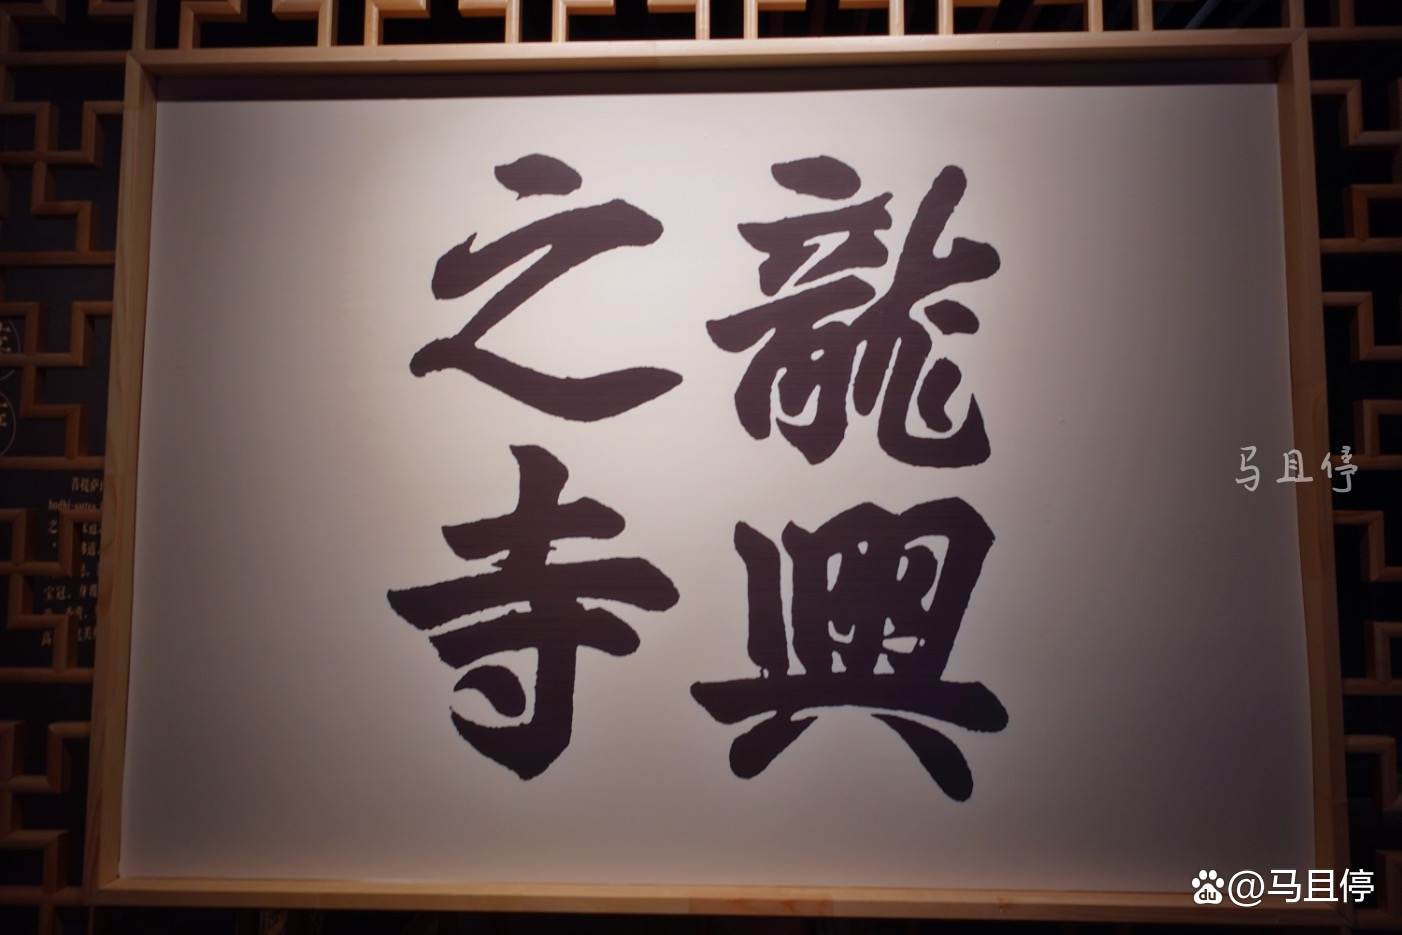 龍興
之寺
马且停
@马且停